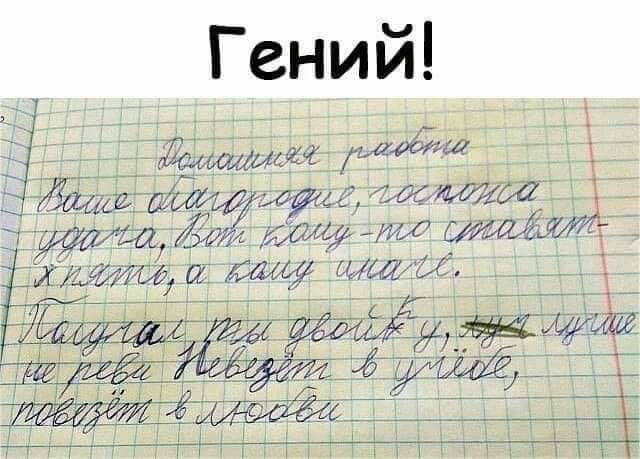 Гений!
Домашняя работа
Ваше благородие, госпожа
удача, Вот кому-то ставят-
х пять, а кому иначе.
Получал ты двойку, луч лучше
не реви Невезёт в учёбе,
повезёт в любви